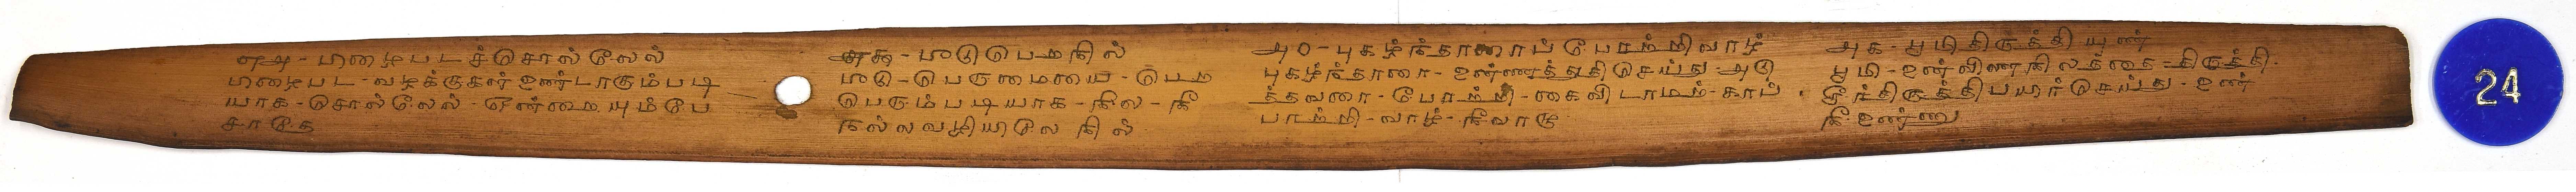 ௭௮ - பிழைபடச்சொல்லேல்
பிழைபட - வழக்குகள் உண்டாகும்படி
யாக - சொல்லேல் - ஒன்றையும்பே
சாதே
௭௯ - பீடுபெறநில்
பீடு - பெருமையை - பெற
பெரும்படியாக - நில - நீ
நல்லவழியிலேநில்
௮௦ - புகழ்ந்தாரைப்போற்றிவாழ்
புகழ்ந்தாரை - உன்னைத்துதிசெய்து - அடு
த்தவரை - போற்றி - கைவிடாமற் - காப்
பாற்றி - வாழ் - நீவாழு
௮௧ - பூமிதிருத்தியுண்
பூமி - உன்விளைநிலத்தை - திருத்தி -
சீர்திருத்திப்பயிர்செய்து - உண்
நீஉண்ணு
24